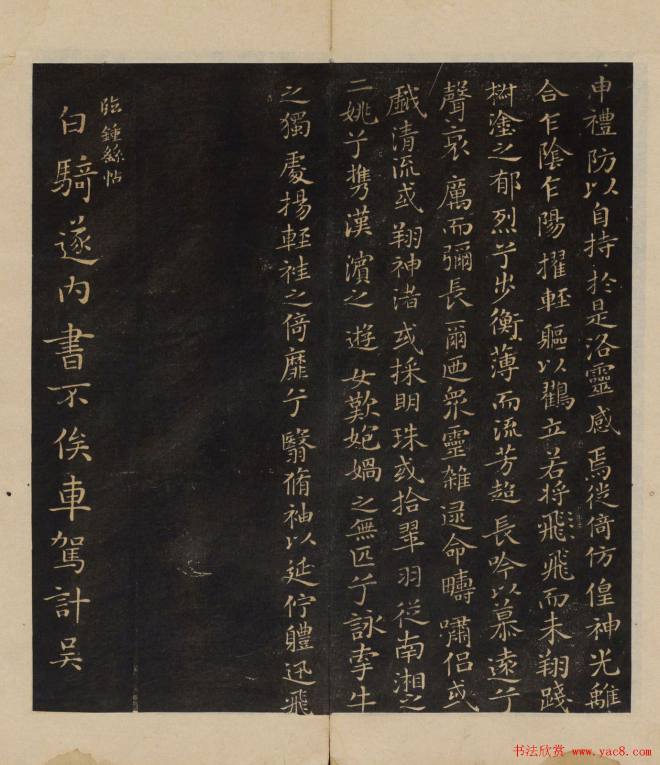 申禮防以自持於是洛靈感焉徙倚仿偟神光離
合乍陰乍陽擢輕軀以鸛立若将飛飛而未翔踐
椒塗之郁烈兮步衡薄而流芳超長吟以慕遠兮
聲哀厲而彌長爾迺衆靈雜遝命疇嘯侶或
戲清流或翔神渚或採明珠或拾翠羽從南湘之
二姚兮携漢濱之遊女歎匏媧之無匹兮詠牽牛
之獨處揚輕袿之倚靡兮翳脩袖以延佇軆迅飛
臨鍾繇帖
白騎遂内書不俟車駕計吴
书法欣赏 www.yac8.com